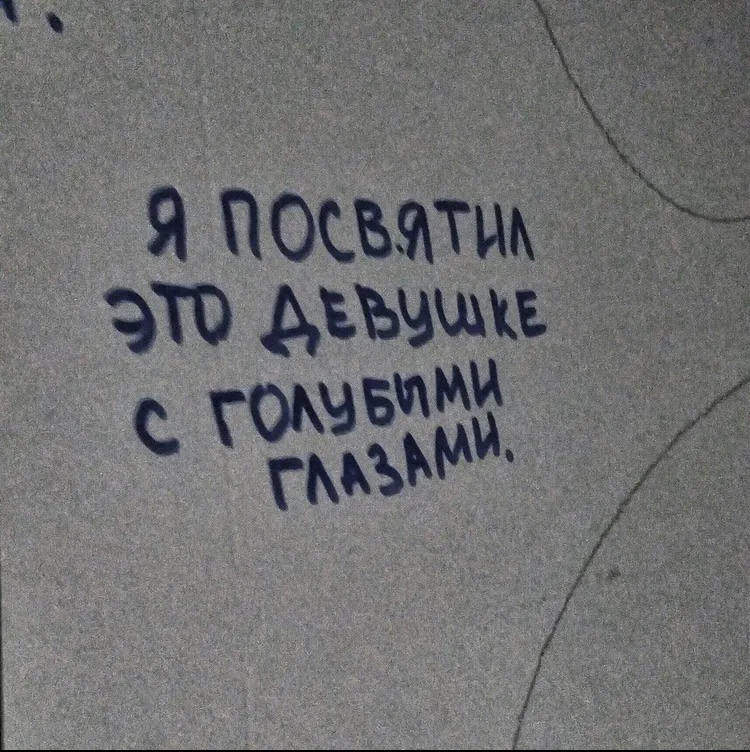 Я ПОСВЯТИЛ
ЭТО ДЕВУШКЕ
С ГОЛУБЫМИ
ГЛАЗАМИ.